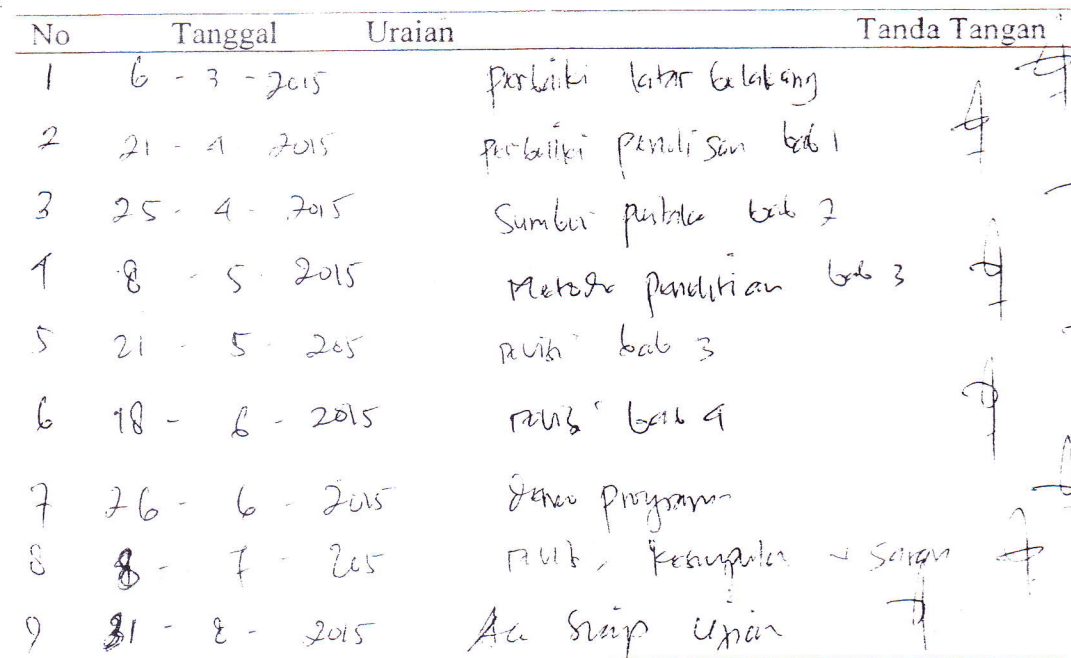 No Tanggal Uraian Tanda Tangan
1 6 - 3 - 2015 perbaiki latar belakang
2 21 - 4 - 2015 perbaiki penulisan bab 1
3 25 - 4 - 2015 Sumber pustaka bab 2
4 8 - 5 - 2015 Metode penelitian bab 3
5 21 - 5 - 205 revisi bab 3
6 18 - 6 - 2015 revisi bab 4
7 26 - 6 - 2015 demo program
8 8 - 7 - 205 revisi, kesimpulan saran
9 31 - 8 - 2015 Acc Siap Ujian